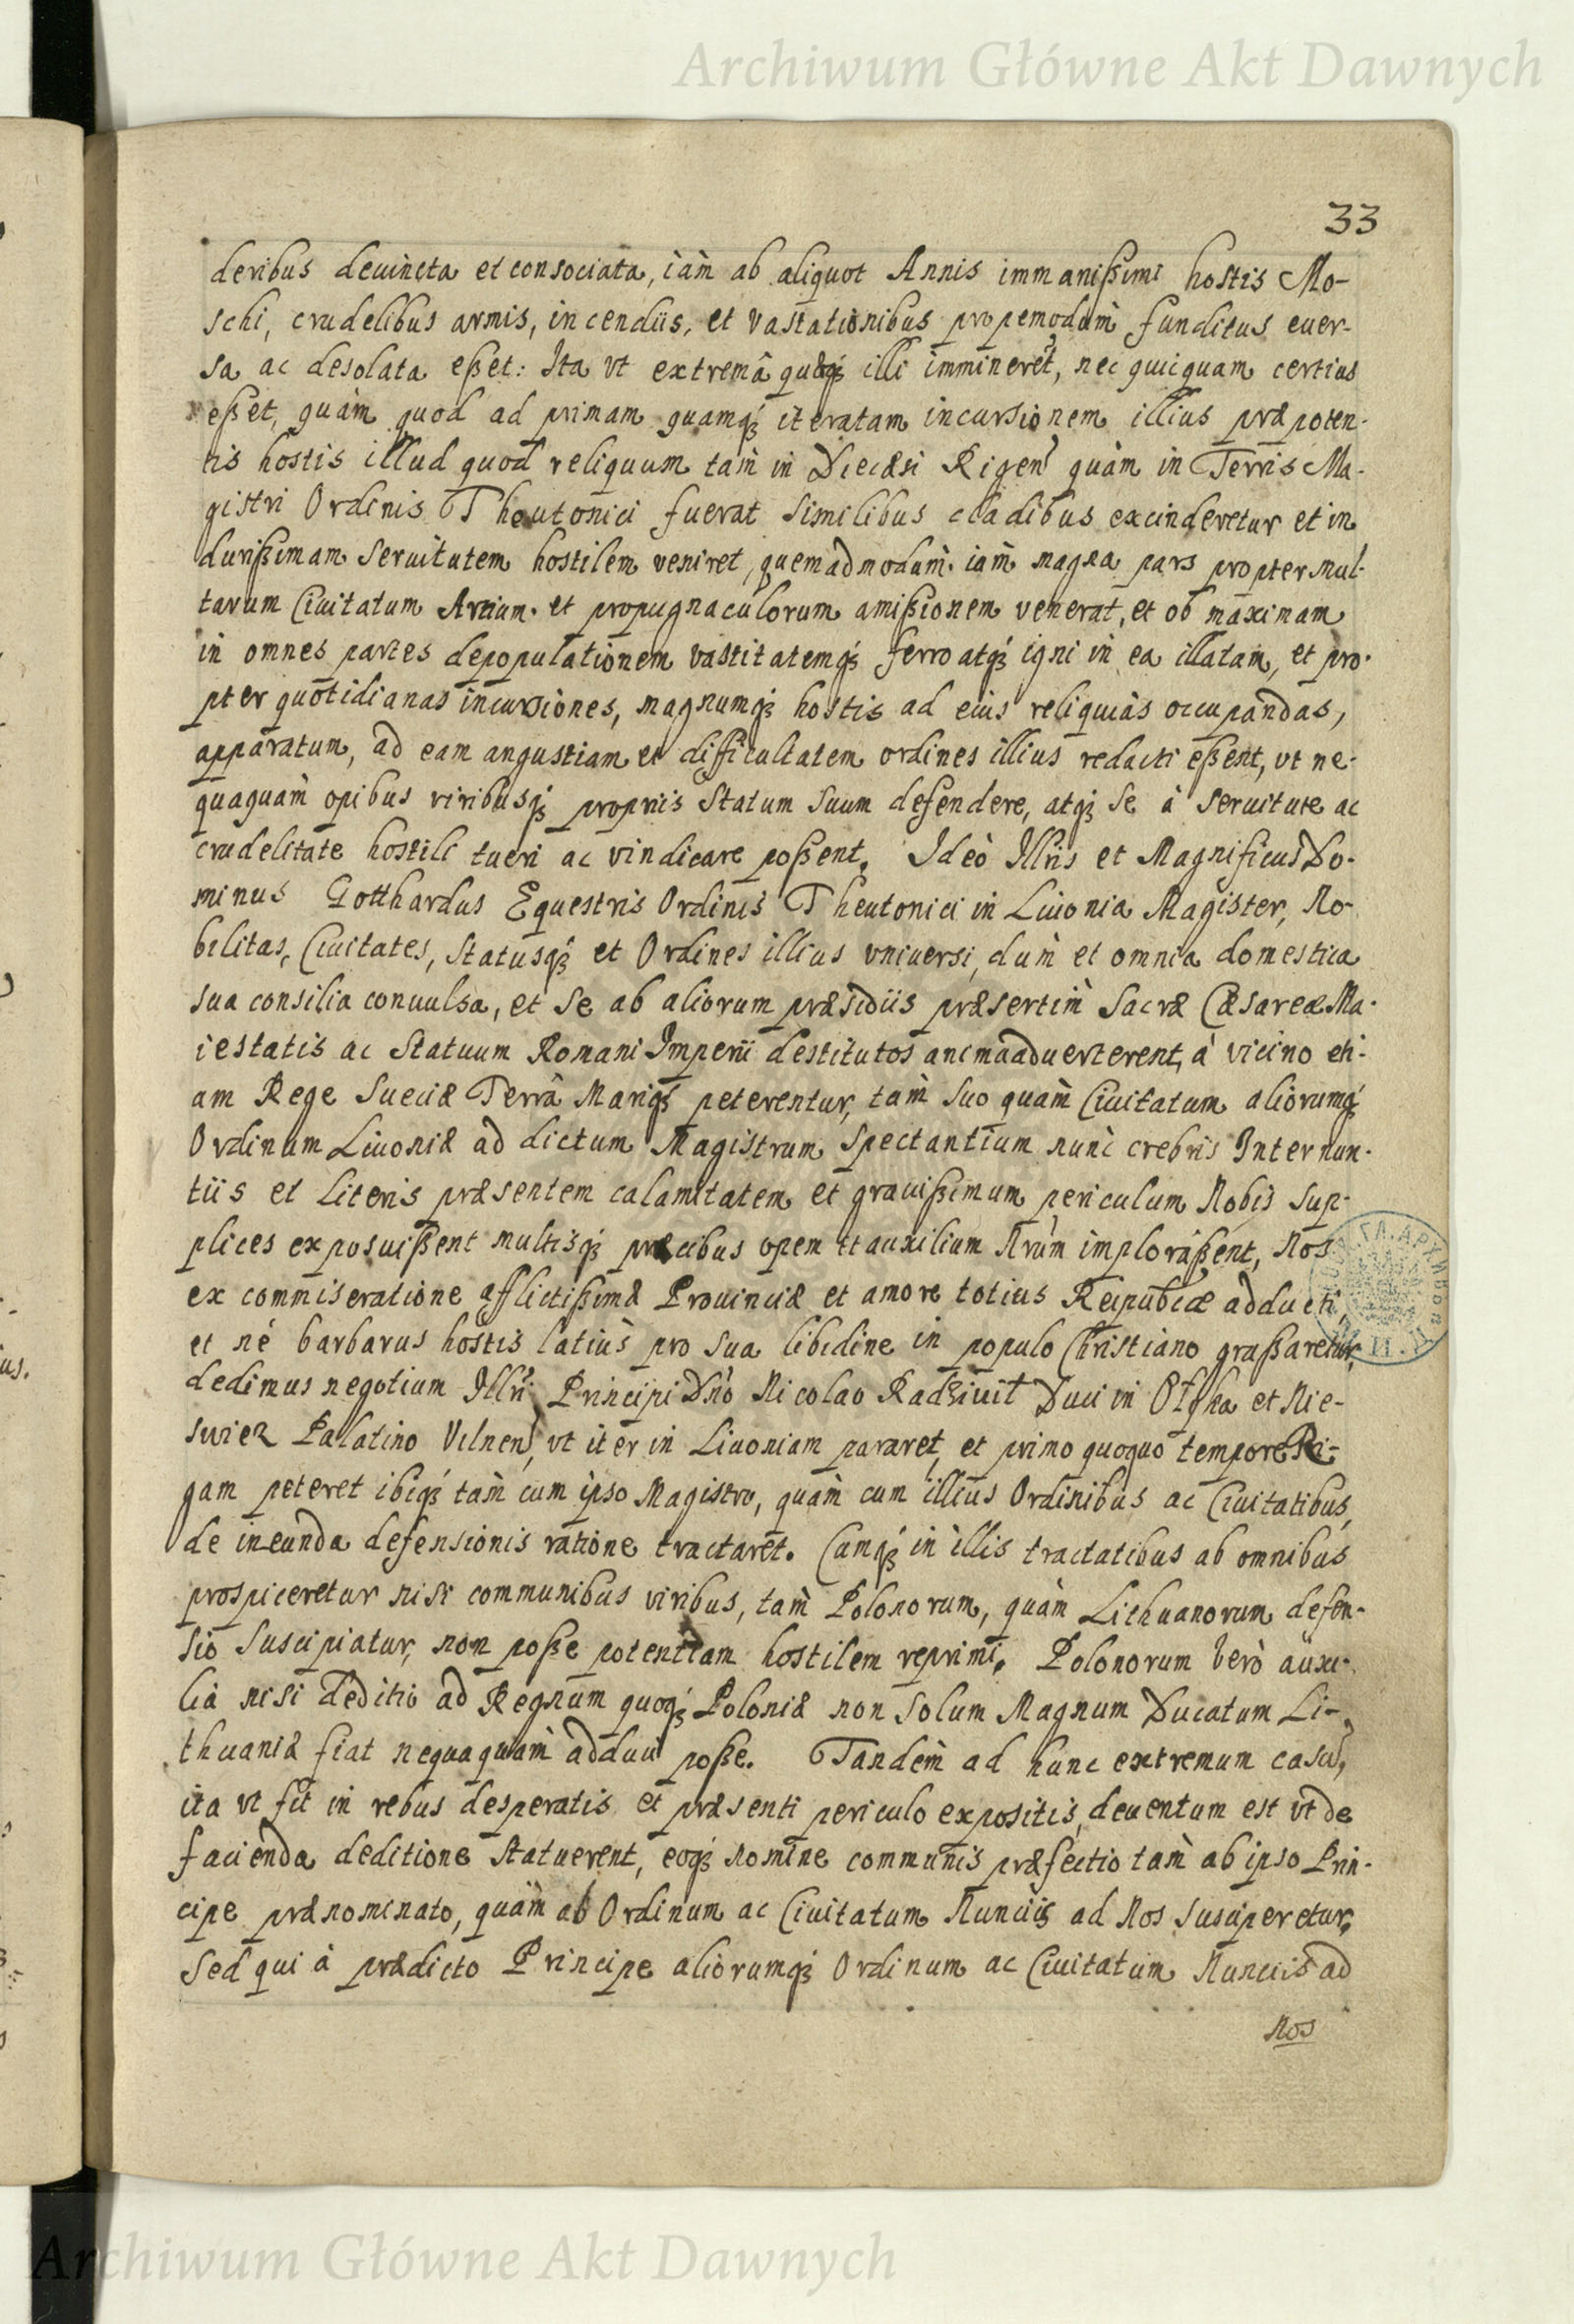 Archiwum Główne Akt Dawnych
33
deribus deuincta et consociata, iam̀ ab aliquot Annis immanißimi hostis Mo-
schi, crudelibus armis, incendiis, et vastationibus propemodum̀ funditus euer-
sa ac desolata eßet: Ita vt extremâ quæq́ꝫ illi immineret, nec quicquam certius
eßet, quàm quod ad primam quamq́ꝫ iteratam incursionem illius præpoten-
tis hostis illud quod reliquum tam̀ in Diecæsi Rigen̄ quàm in Terris Ma-
gistri Ordinis Theutonici fuerat similibus cladibus excinderetur et in
durißimam seruitutem hostilem veniret, quemadmodum̀ iam̀ magna pars propter mul-
tarum Ciuitatum Arcium et propugnaculorum amißionem venerat, et ob maximam
in omnes partes depopulationem vastitatemq́ꝫ ferro atq́ꝫ igni in ea illatam, et pro-
pter quotidianas incursiones, magnumq́ꝫ hostis ad eius reliquias occupandas,
apparatum, ad eam angustiam et difficultatem ordines illius redacti eßent, vt ne-
quaquàm opibus viribusq́ꝫ propriis statum suum defendere, atq́ꝫ se à seruitute ac
crudelitate hostili tueri ac vindicare poßent. Ideò Illris et Magnificus Do-
minus Gotthardus Equestris Ordinis Theutonici in Liuonia Magister, No-
bilitas, Ciuitates, statusq́ꝫ et Ordines illius vniuersi, dum̀ et omnia domestica
sua consilia conuulsa, et se ab aliorum præsidiis præsertim̀ Sacræ Cæsareæ Ma-
iestatis ac statuum Romani Imperii destitutos animaaduerterent, à vicino eti-
am Rege Sueciæ Terrâ Mariq́ꝫ peterentur, tam̀ suo quàm Ciuitatum aliorumq́ꝫ
Ordinum Liuoniæ ad dictum Magistrum spectantium nunc̀ crebris Internun-
tiis et Literis præsentem calamitatem et grauißimum periculum Nobis sup-
plices exposuißent multisq́ꝫ præcibus opem et auxilium Nrūm implorâßent, Nos
ex commiseratione afflictißimæ Prouinciæ et amore totius Reipublicæ adducti,
et né barbarus hostis latiùs pro sua libidine in populo Christiano graßaretur,
dedimus negotium Illri Principi Dno Nicolao Radziuił Duci in Ołyka et Nie-
swiez Palatino Vilnen̄, vt iter in Liuoniam pararet, et primo quoquo tempore Ri-
gam peteret ibiq́ꝫ tam̀ cum ipso Magistro, quàm cum illius Ordinibus ac Ciuitatibus,
de ineunda defensionis ratione tractaret. Cumq́ꝫ in illis tractatibus ab omnibus
prospiceretur nisi communibus viribus, tam̀ Polonorum, quàm Lithuanorum defen-
sio suscipiatur, non poße potentiam hostilem reprimi. Polonorum verò auxi-
lia nisi deditio ad Regnum quoq́ꝫ Poloniæ non solum Magnum Ducatum Li-
thuaniæ fiat nequaquàm adduci poße. Tandem̀ ad hunc extremum casū,
ita vt fit in rebus desperatis et præsenti periculo expositis, deuentum est vt de
facienda deditione statuerent, eoq́ꝫ nomine communis præfectio tam̀ ab ipso Prin-
cipe prænominato, quàm ab Ordinum ac Ciuitatum Nunciis ad Nos susciperetur,
Sed qui à prædicto Principe aliorumq́ꝫ Ordinum ac Ciuitatum Nunciis ad
Nos
Archiwum Główne Akt Dawnych